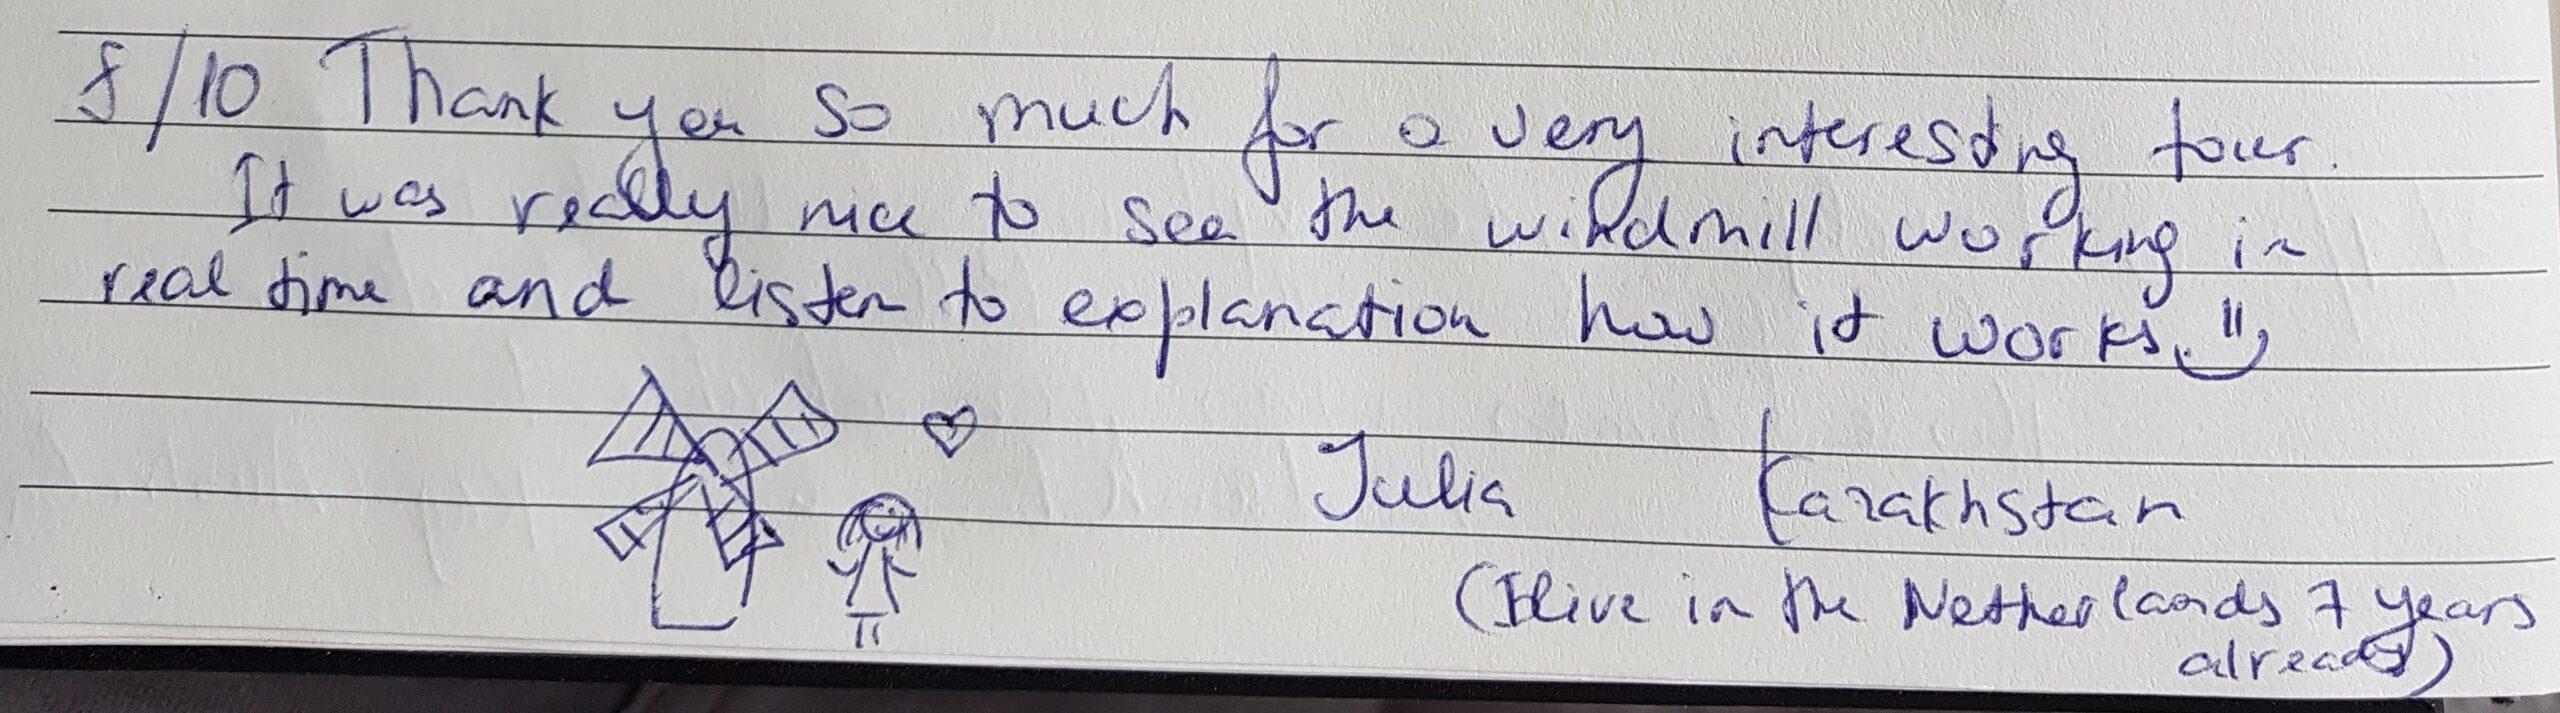 8/10 Thank you so much for a very interesting tour.
It was really nice to see the windmill working in
real time and listen to explanation how it works.
Julia Kazakhstan
(I live in the Netherlands 7 years
already)